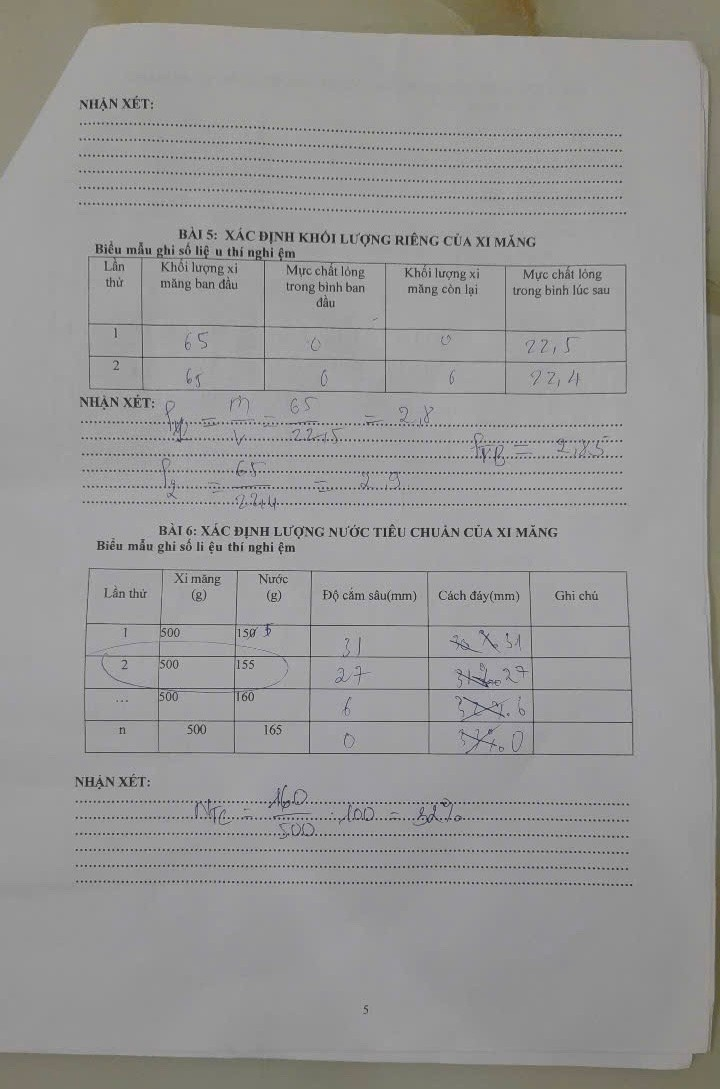 NHẬN XÉT:
BÀI 5: XÁC ĐỊNH KHỐI LƯỢNG RIÊNG CỦA XI MĂNG
Biểu mẫu ghi số liệ u thí nghi ệm
Lần thứ Khối lượng xi măng ban đầu Mực chất lỏng trong bình ban đầu Khối lượng xi măng còn lại Mực chất lỏng trong bình lúc sau
1 65 0 0 22,5
2 65 0 0 22,4
NHẬN XÉT:
= m/V = 65/22,5 = 2,8
ρTB = 2,85
ρ2 = 65/22,4 = 2,9
BÀI 6: XÁC ĐỊNH LƯỢNG NƯỚC TIÊU CHUẨN CỦA XI MĂNG
Biểu mẫu ghi số li ệu thí nghi ệm
Lần thứ Xi măng (g) Nước (g) Độ cắm sâu(mm) Cách đáy(mm) Ghi chú
1 500 150 31 31
2 500 155 27 27
... 500 160 6 6
n 500 165 0 0
NHẬN XÉT:
NTC = 160/500 . 100 = 32%
5